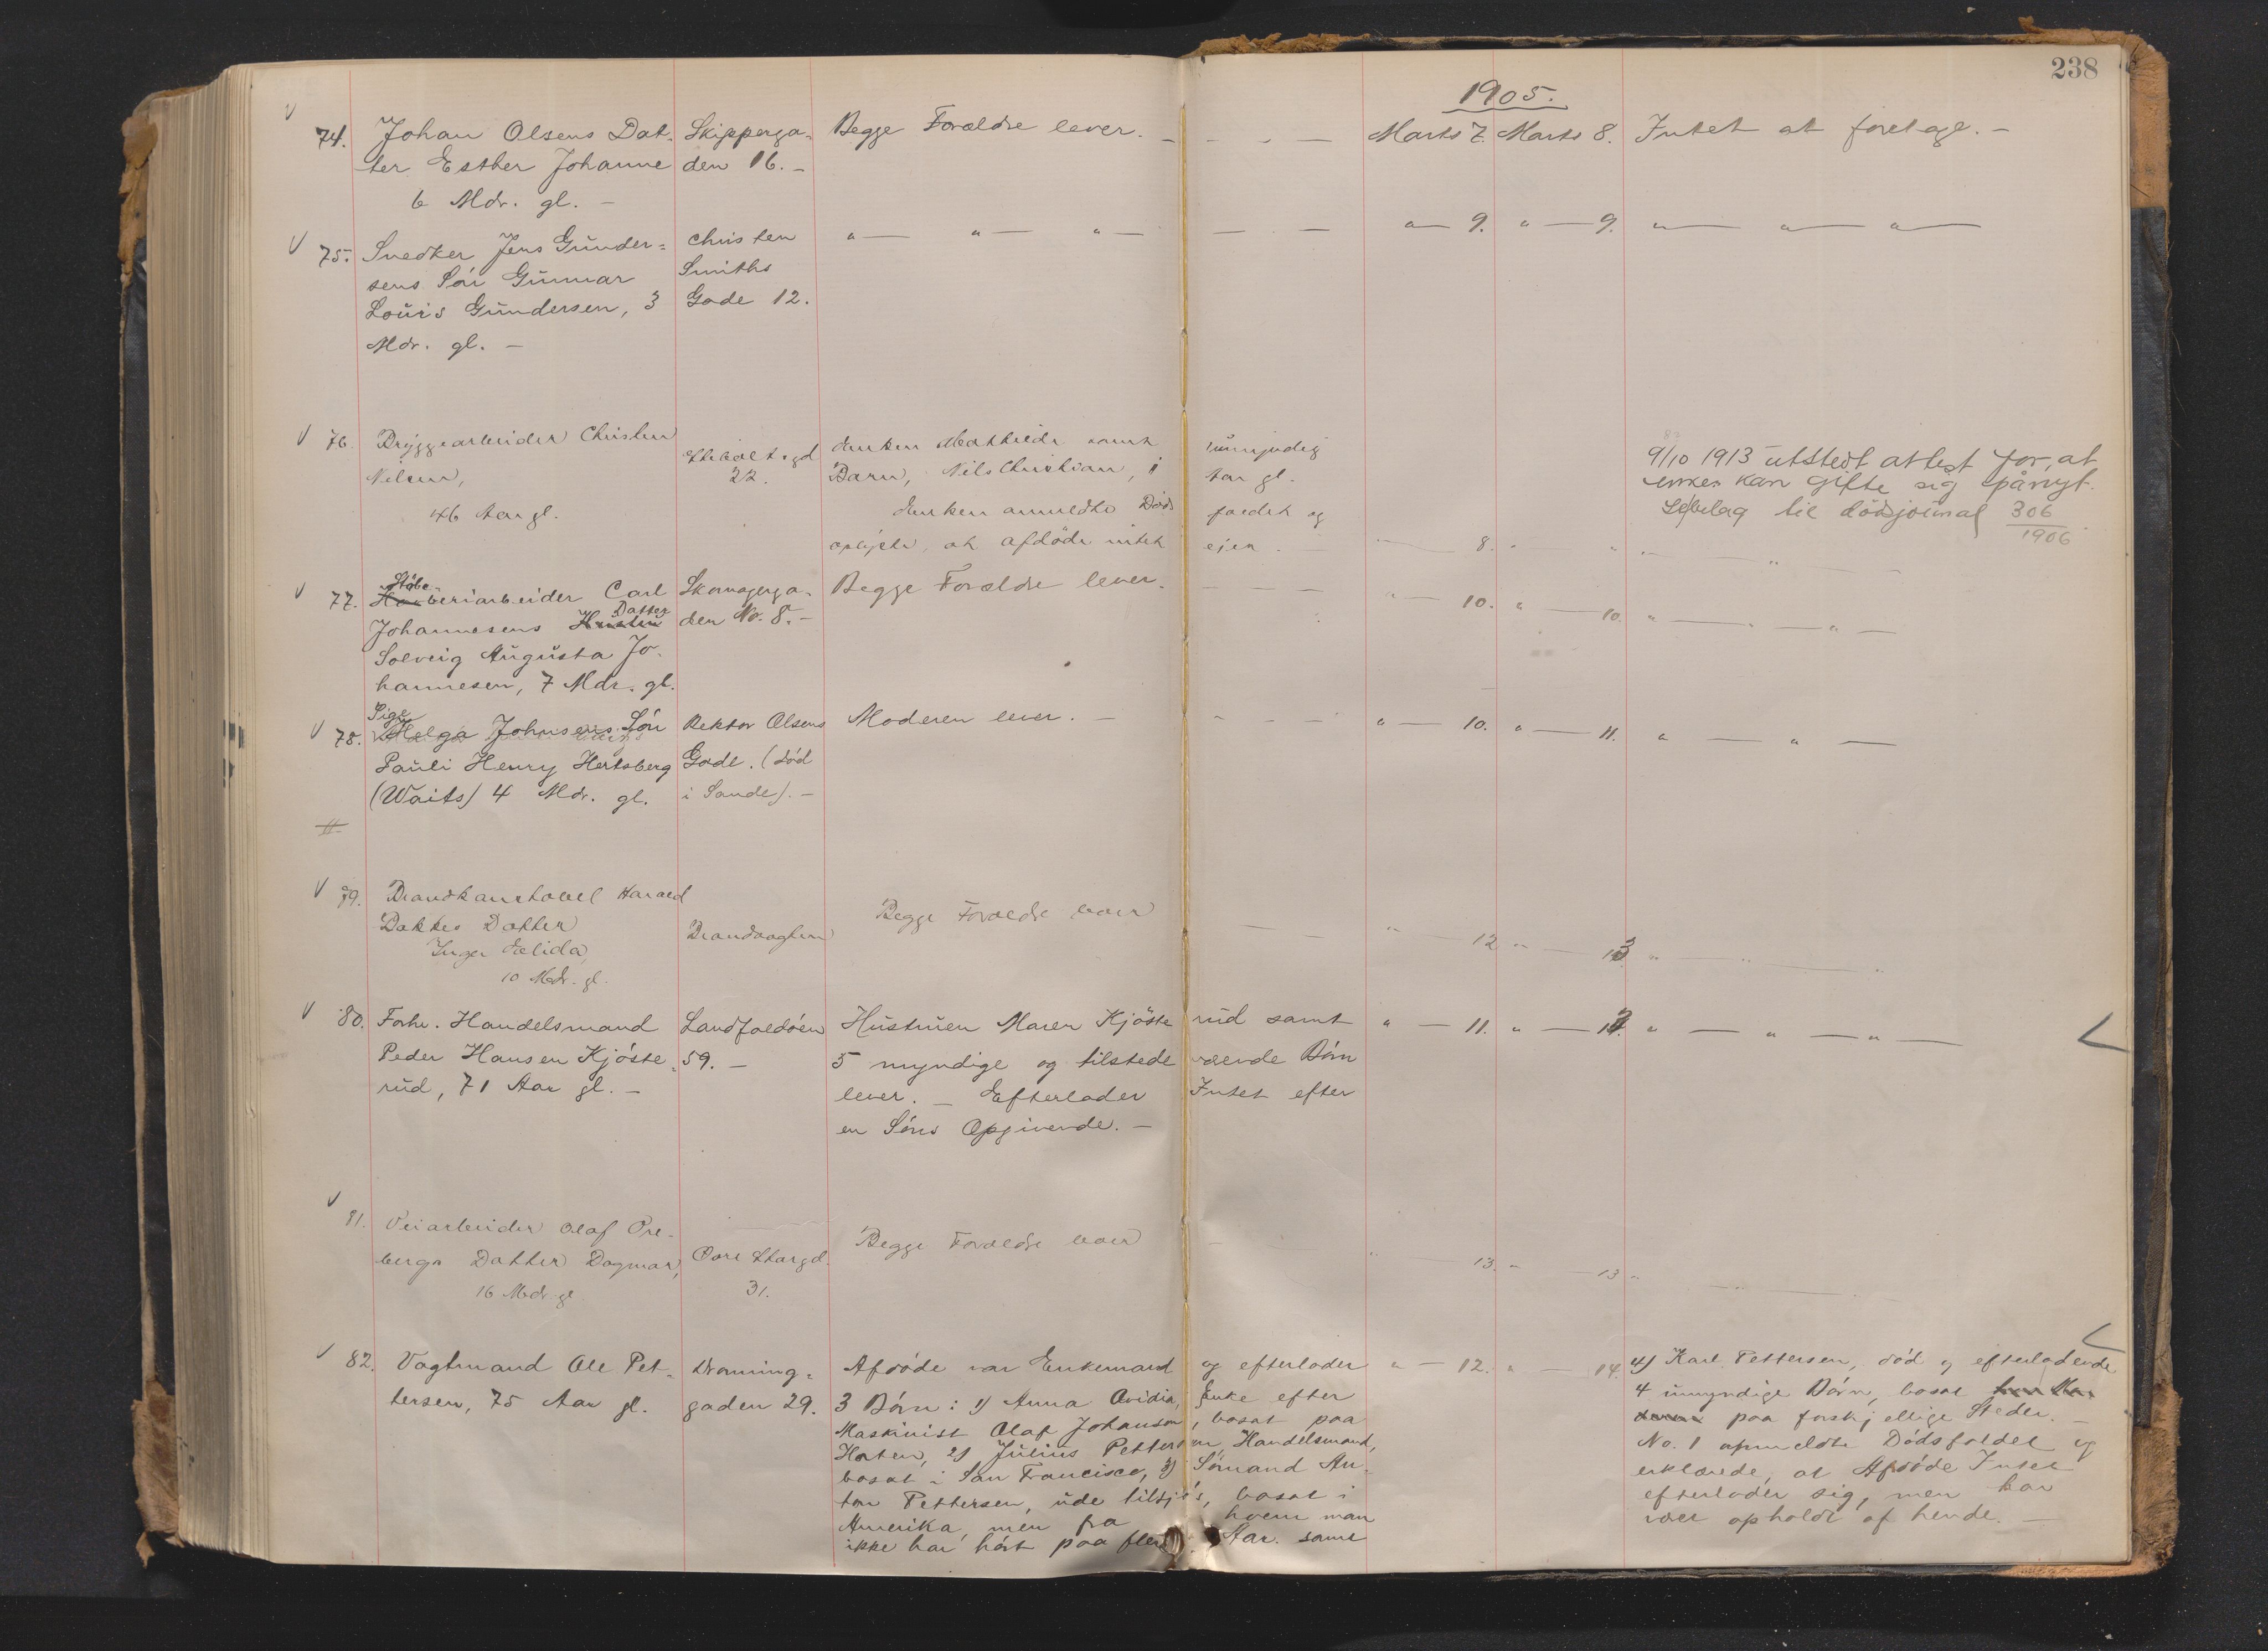 238
1905.
74. Johan Olsens Dat- Skipperga- Begge Forældre lever. - - - - Marts 7. Marts 8. Intet at foretage. -
ter Esther Johanne den 16. -
6 Mdr. gl. -
75. Snedker Jens Gunder= Christen " — " — " — — — " — 9. " — 9. " — " — " —
sens Søn Gunnar Smiths
Louis Gundersen, 3 Gade 12.
Mdr. gl. -
76. Bryggearbeider Christen Enken Mathilde samt umyndig 9/10 1913 utstedt attest for, at
Nilsen, 22. Barn, Nils Christian, Aar gl. enken kan gifte sig pånyt.
46 Aar gl. Enken anmeldte Døds faldet og bilag til dödsjournal 306
oplyste, at afdöde intet ejer. 8. " " — 1906
77. Støbe- Skomagerga- Begge Forældre lever. - — — " — 10. " — 10. " — " — " —
beriarbeider Carl den No. 8. -
Johannesens Datter
Solveig Augusta Jo-
hannesen, 7 Mdr. gl.
78. Pige Helga Johnsens Søn Rektor Olsens Moderen lever. - - - - " — 10. " — 11. " — " —
Pauli Henry Hertsberg Gade. (død
(Waits) 4 Mdr. gl. i Sande). -
79. Brandkonstabel Harald
Datter Brandvagten Begge Forældre lever — — " — 12 " — 13 " — " — "
Inger Elida,
10 Mdr. gl.
80. Forhv. Handelsmand Landfaldøen Hustruen Maren Kjöste rud samt " — 11. " — " — " — " —
Peder Hansen Kjøste= 59. - 5 myndige og tilstede værende Børn
rud, 71 Aar gl. - lever. - Efterlader Intet efter
en Søns Opgivende. -
81. Veiarbeider Olaf Ore-
bergs Datter Dagmar, Øvre Storgd. Begge Forældre lever " 13. " — 13 " — " —
16 Mdr. gl. 31.
82. Vagtmand Ole Pet- Dronning= Afdøde var Enkemand og efterlader " — 12. " — 14. 4) Karl Pettersen, død og efterladende
tersen, 75 Aar gl. gaden 29. 3 Børn: 1) Anna Ovidia, Enke efter 4 umyndige Børn, bosat
Maskinist Olaf Johansen, bosat paa paa forskjellige Steder. -
Horten, 2) Julius Pettersen, Handelsmand, No. 1 anmeldte Dødsfaldet og
bosat i San Francisco, 3) Sømand An- erklærede, at Afdøde Intet
ton Pettersen, ude tilsjøs, bosat i efterlader sig, men har
Amerika, men fra hvem man vært opholdt af hende. -
ikke har hört paa flere Aar. samt